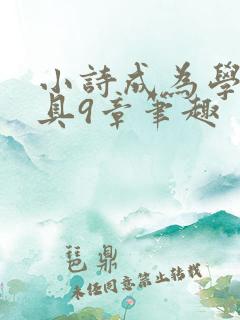 小詩成為學
具9章筆趣
琶鼎
未經同意禁止轉載